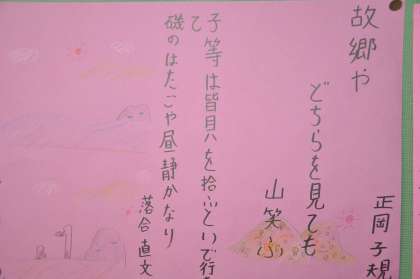 故郷や
どちらを見ても
山笑ふ
正岡子規
子等は皆貝を拾いにといで行
て
磯のはたごや昼静かなり
落合直文